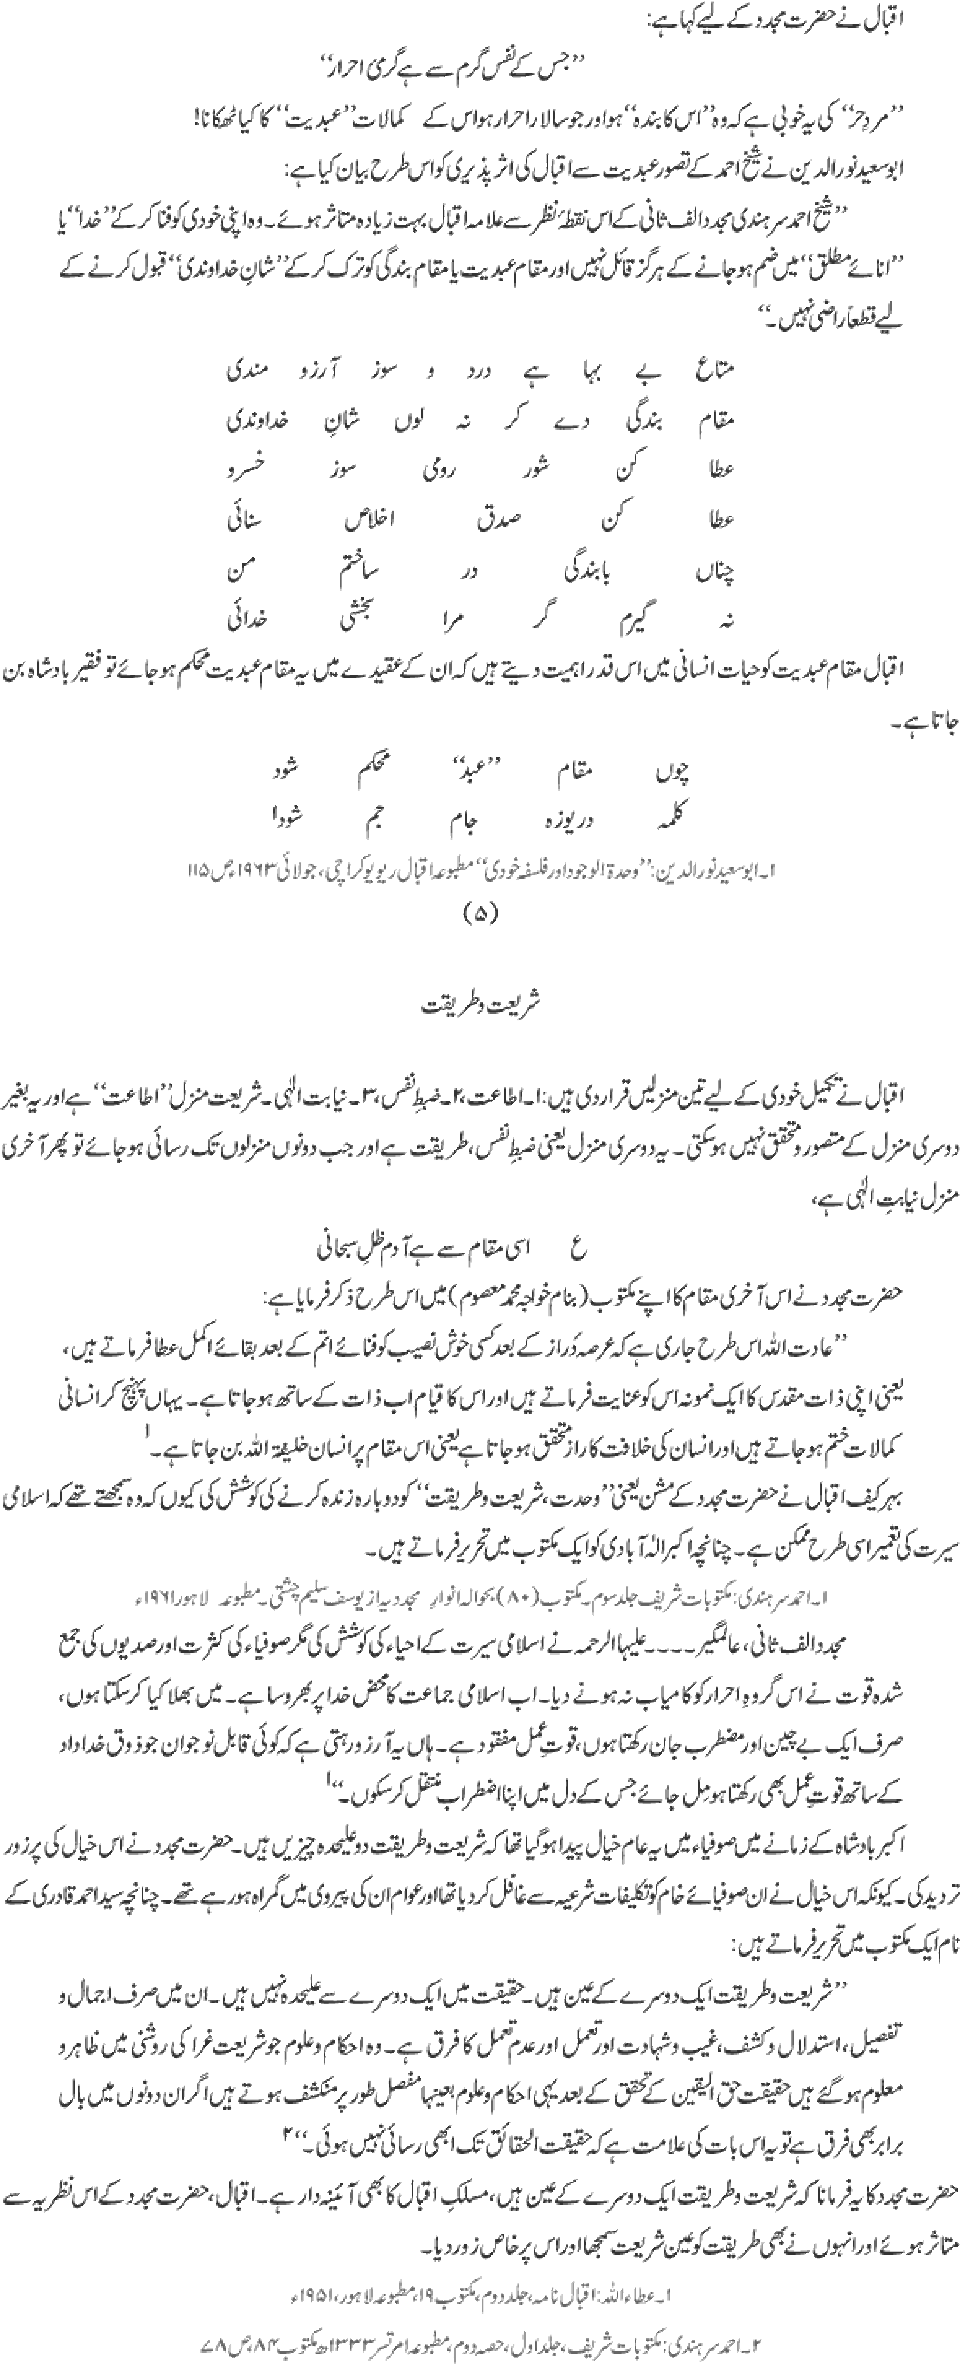 اقبال نے حضرت مجدد کے لیے کہا ہے:
”جس کے نفس گرم سے ہے گرمیٔ احرار“
”مردِ حر“ کی یہ خوبی ہے کہ وہ ”اس کا بندہ“ ہو اور جو سالار احرار ہو اس کے کمالات ”عبدیت“ کا کیا ٹھکانا!
ابو سعید نور الدین نے شیخ احمد کے تصور عبدیت سے اقبال کی اثر پذیری کو اس طرح بیان کیا ہے:
”شیخ احمد سرہندی مجدد الف ثانی کے اس نقطۂ نظر سے علامہ اقبال بہت زیادہ متاثر ہوئے۔ وہ اپنی خودی کو فنا کر کے ”خدا“ یا
”انائے مطلق“ میں ضم ہو جانے کے ہرگز قائل نہیں اور مقام عبدیت یا مقام بندگی کو ترک کر کے ”شانِ خداوندی“ قبول کرنے کے
لیے قطعاً راضی نہیں۔“
متاع بے بہا ہے درد و سوز آرزو مندی
مقام بندگی دے کر نہ لوں شانِ خداوندی
عطا کن شور رومی سوز خسرو
عطا کن صدق اخلاص سنائی
چناں بابندگی در ساختم من
نہ گیرم گر مرا بخشی خدائی
اقبال مقام عبدیت کو حیات انسانی میں اس قدر اہمیت دیتے ہیں کہ ان کے عقیدے میں یہ مقام عبدیت محکم ہو جائے تو فقیر بادشاہ بن
جاتا ہے۔
چوں مقام ”عبدہٗ“ محکم شود
کلمہ دریوزہ جام جم شود ۱
۱۔ ابو سعید نور الدین: ”وحدۃ الوجود اور فلسفہ خودی“ مطبوعہ اقبال ریویو کراچی، جولائی ۱۹۶۳ء ص ۱۱۵
(۵)
شریعت و طریقت
اقبال نے تکمیل خودی کے لیے تین منزلیں قرار دی ہیں: ۱۔ اطاعت، ۲۔ ضبطِ نفس، ۳۔ نیابت الٰہی۔ شریعت منزل ”اطاعت“ ہے اور یہ بغیر
دوسری منزل کے متصور و متحقق نہیں ہو سکتی۔ یہ دوسری منزل یعنی ضبطِ نفس، طریقت ہے اور جب دونوں منزلوں تک رسائی ہو جائے تو پھر آخری
منزل نیابتِ الٰہی ہے،
ع اسی مقام سے ہے آدم ظلِ سبحانی
حضرت مجدد نے اس آخری مقام کا اپنے مکتوب (بنام خواجہ محمد معصوم) میں اس طرح ذکر فرمایا ہے:
”عادت اللہ اس طرح جاری ہے کہ عرصہ دراز کے بعد کسی خوش نصیب کو فنائے اتم کے بعد بقائے اکمل عطا فرماتے ہیں،
یعنی اپنی ذات مقدس کا ایک نمونہ اس کو عنایت فرماتے ہیں اور اس کا قیام اب ذات کے ساتھ ہو جاتا ہے۔ یہاں پہنچ کر انسانی
کمالات ختم ہو جاتے ہیں اور انسان کی خلافت کا راز متحقق ہو جاتا ہے یعنی اس مقام پر انسان خلیفۃ اللہ بن جاتا ہے۔ ۱
بہر کیف اقبال نے حضرت مجدد کے مشن یعنی ”وحدت، شریعت و طریقت“ کو دوبارہ زندہ کرنے کی کوشش کی کیوں کہ وہ سمجھتے تھے کہ اسلامی
سیرت کی تعمیر اسی طرح ممکن ہے۔ چنانچہ اکبر الٰہ آبادی کو ایک مکتوب میں تحریر فرماتے ہیں۔
۱۔ احمد سرہندی: مکتوبات شریف جلد سوم۔ مکتوب (۸۰) بحوالہ انوارِ مجددیہ از یوسف سلیم چشتی۔ مطبوعہ لاہور ۱۹۶۱ء
مجدد الف ثانی، عالمگیر ۔۔۔۔ علیہا الرحمہ نے اسلامی سیرت کے احیاء کی کوشش کی مگر صوفیاء کی کثرت اور صدیوں کی جمع
شدہ قوت نے اس گروہِ احرار کو کامیاب نہ ہونے دیا۔ اب اسلامی جماعت کا محض خدا پر بھروسا ہے۔ میں بھلا کیا کر سکتا ہوں،
صرف ایک بے چین اور مضطرب جان رکھتا ہوں، قوتِ عمل مفقود ہے۔ ہاں یہ آرزو رہتی ہے کہ کوئی قابل نوجوان جو ذوق خداداد
کے ساتھ قوتِ عمل بھی رکھتا ہو مِل جائے جس کے دل میں اپنا اضطراب منتقل کر سکوں۔“ ۱
اکبر بادشاہ کے زمانے میں صوفیاء میں یہ عام خیال پیدا ہو گیا تھا کہ شریعت و طریقت دو علیحدہ چیزیں ہیں۔ حضرت مجدد نے اس خیال کی پرزور
تردید کی۔ کیونکہ اس خیال نے ان صوفیائے خام کو تکلیفات شرعیہ سے غافل کر دیا تھا اور عوام ان کی پیروی میں گمراہ ہو رہے تھے۔ چنانچہ سید احمد قادری کے
نام ایک مکتوب میں تحریر فرماتے ہیں:
”شریعت و طریقت ایک دوسرے کے عین ہیں۔ حقیقت میں ایک دوسرے سے علیحدہ نہیں ہیں۔ ان میں صرف اجمال و
تفصیل، استدلال و کشف، غیب و شہادت اور تعمل اور عدم تعمل کا فرق ہے۔ وہ احکام و علوم جو شریعت غرا کی روشنی میں ظاہر و
معلوم ہو گئے ہیں حقیقت حق الیقین کے تحقق کے بعد یہی احکام و علوم بعینہا مفصل طور پر منکشف ہوتے ہیں اگر ان دونوں میں بال
برابر بھی فرق ہے تو یہ اس بات کی علامت ہے کہ حقیقت الحقائق تک ابھی رسائی نہیں ہوئی۔“ ۲
حضرت مجدد کا یہ فرمانا کہ شریعت و طریقت ایک دوسرے کے عین ہیں، مسلکِ اقبال کا بھی آئینہ دار ہے۔ اقبال، حضرت مجدد کے اس نظریہ سے
متاثر ہوئے اور انہوں نے بھی طریقت کو عین شریعت سمجھا اور اس پر خاص زور دیا۔
۱۔ عطاء اللہ: اقبال نامہ، جلد دوم، مکتوب ۱۹، مطبوعہ لاہور، ۱۹۵۱ء
۲۔ احمد سرہندی: مکتوبات شریف، جلد اول، حصہ دوم، مطبوعہ امرتسر ۱۳۳۳ھ مکتوب ۸۴، ص ۷۸